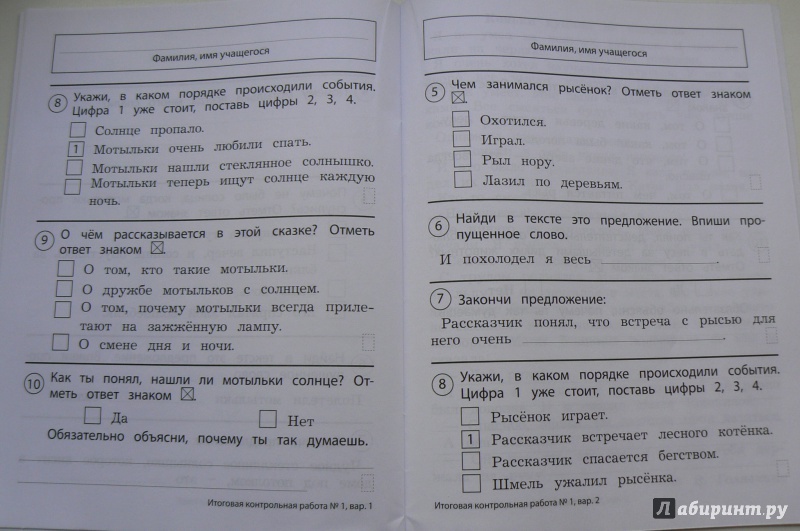 Фамилия, имя учащегося
8 Укажи, в каком порядке происходили события.
Цифра 1 уже стоит, поставь цифры 2, 3, 4.
Солнце пропало.
1 Мотыльки очень любили спать.
Мотыльки нашли стеклянное солнышко.
Мотыльки теперь ищут солнце каждую
ночь.
9 О чём рассказывается в этой сказке? Отметь
ответ знаком ☒.
О том, кто такие мотыльки.
О дружбе мотыльков с солнцем.
О том, почему мотыльки всегда приле-
тают на зажжённую лампу.
О смене дня и ночи.
10 Как ты понял, нашли ли мотыльки солнце? От-
меть ответ знаком ☒.
Да Нет
Обязательно объясни, почему ты так думаешь.
Итоговая контрольная работа № 1, вар. 1
Фамилия, имя учащегося
5 Чем занимался рысёнок? Отметь ответ знаком
☒.
Охотился.
Играл.
Рыл нору.
Лазил по деревьям.
6 Найди в тексте это предложение. Впиши про-
пущенное слово.
И похолодел я весь ______________.
7 Закончи предложение:
Рассказчик понял, что встреча с рысью для
него очень ______________.
8 Укажи, в каком порядке происходили события.
Цифра 1 уже стоит, поставь цифры 2, 3, 4.
Рысёнок играет.
1 Рассказчик встречает лесного котёнка.
Рассказчик спасается бегством.
Шмель ужалил рысёнка.
Итоговая контрольная работа № 1, вар. 2
Лабиринт.ру